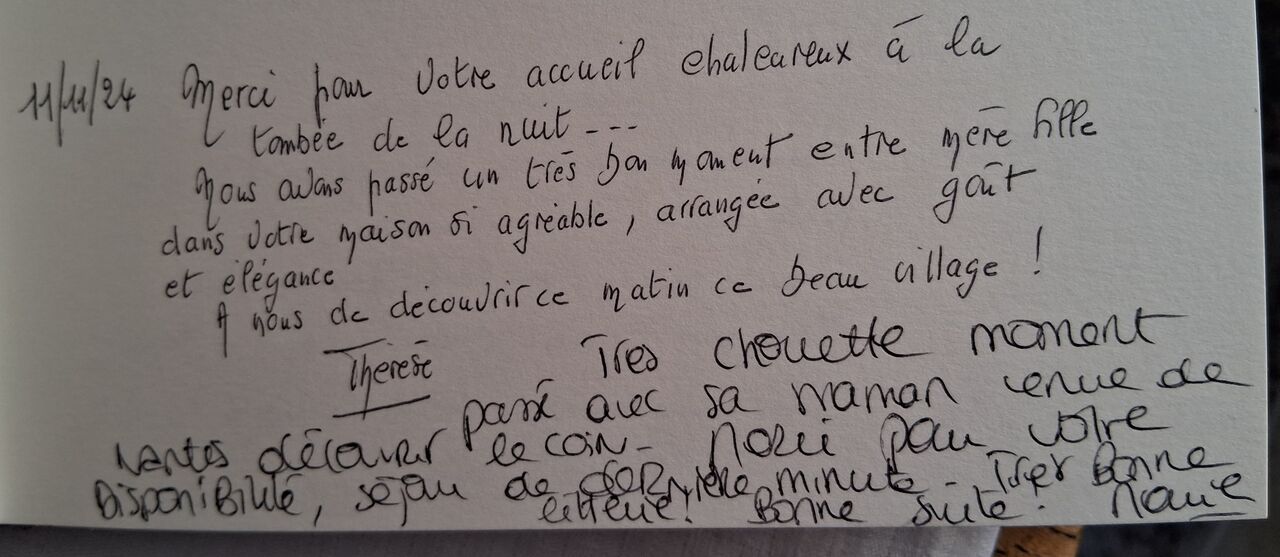 11/11/24 Merci pour votre accueil chaleureux à la
tombée de la nuit ---
Nous avons passé un très bon moment entre mère fille
dans votre maison si agréable, arrangée avec goût
et élégance
A nous de découvrir ce matin ce beau village !
Thérèse
Très chouette moment
passé avec sa maman venue de
Nantes découvrir le coin - Merci pour votre
Disponibilité, séjour de dernière minute - Très Bonne
Bonne suite !